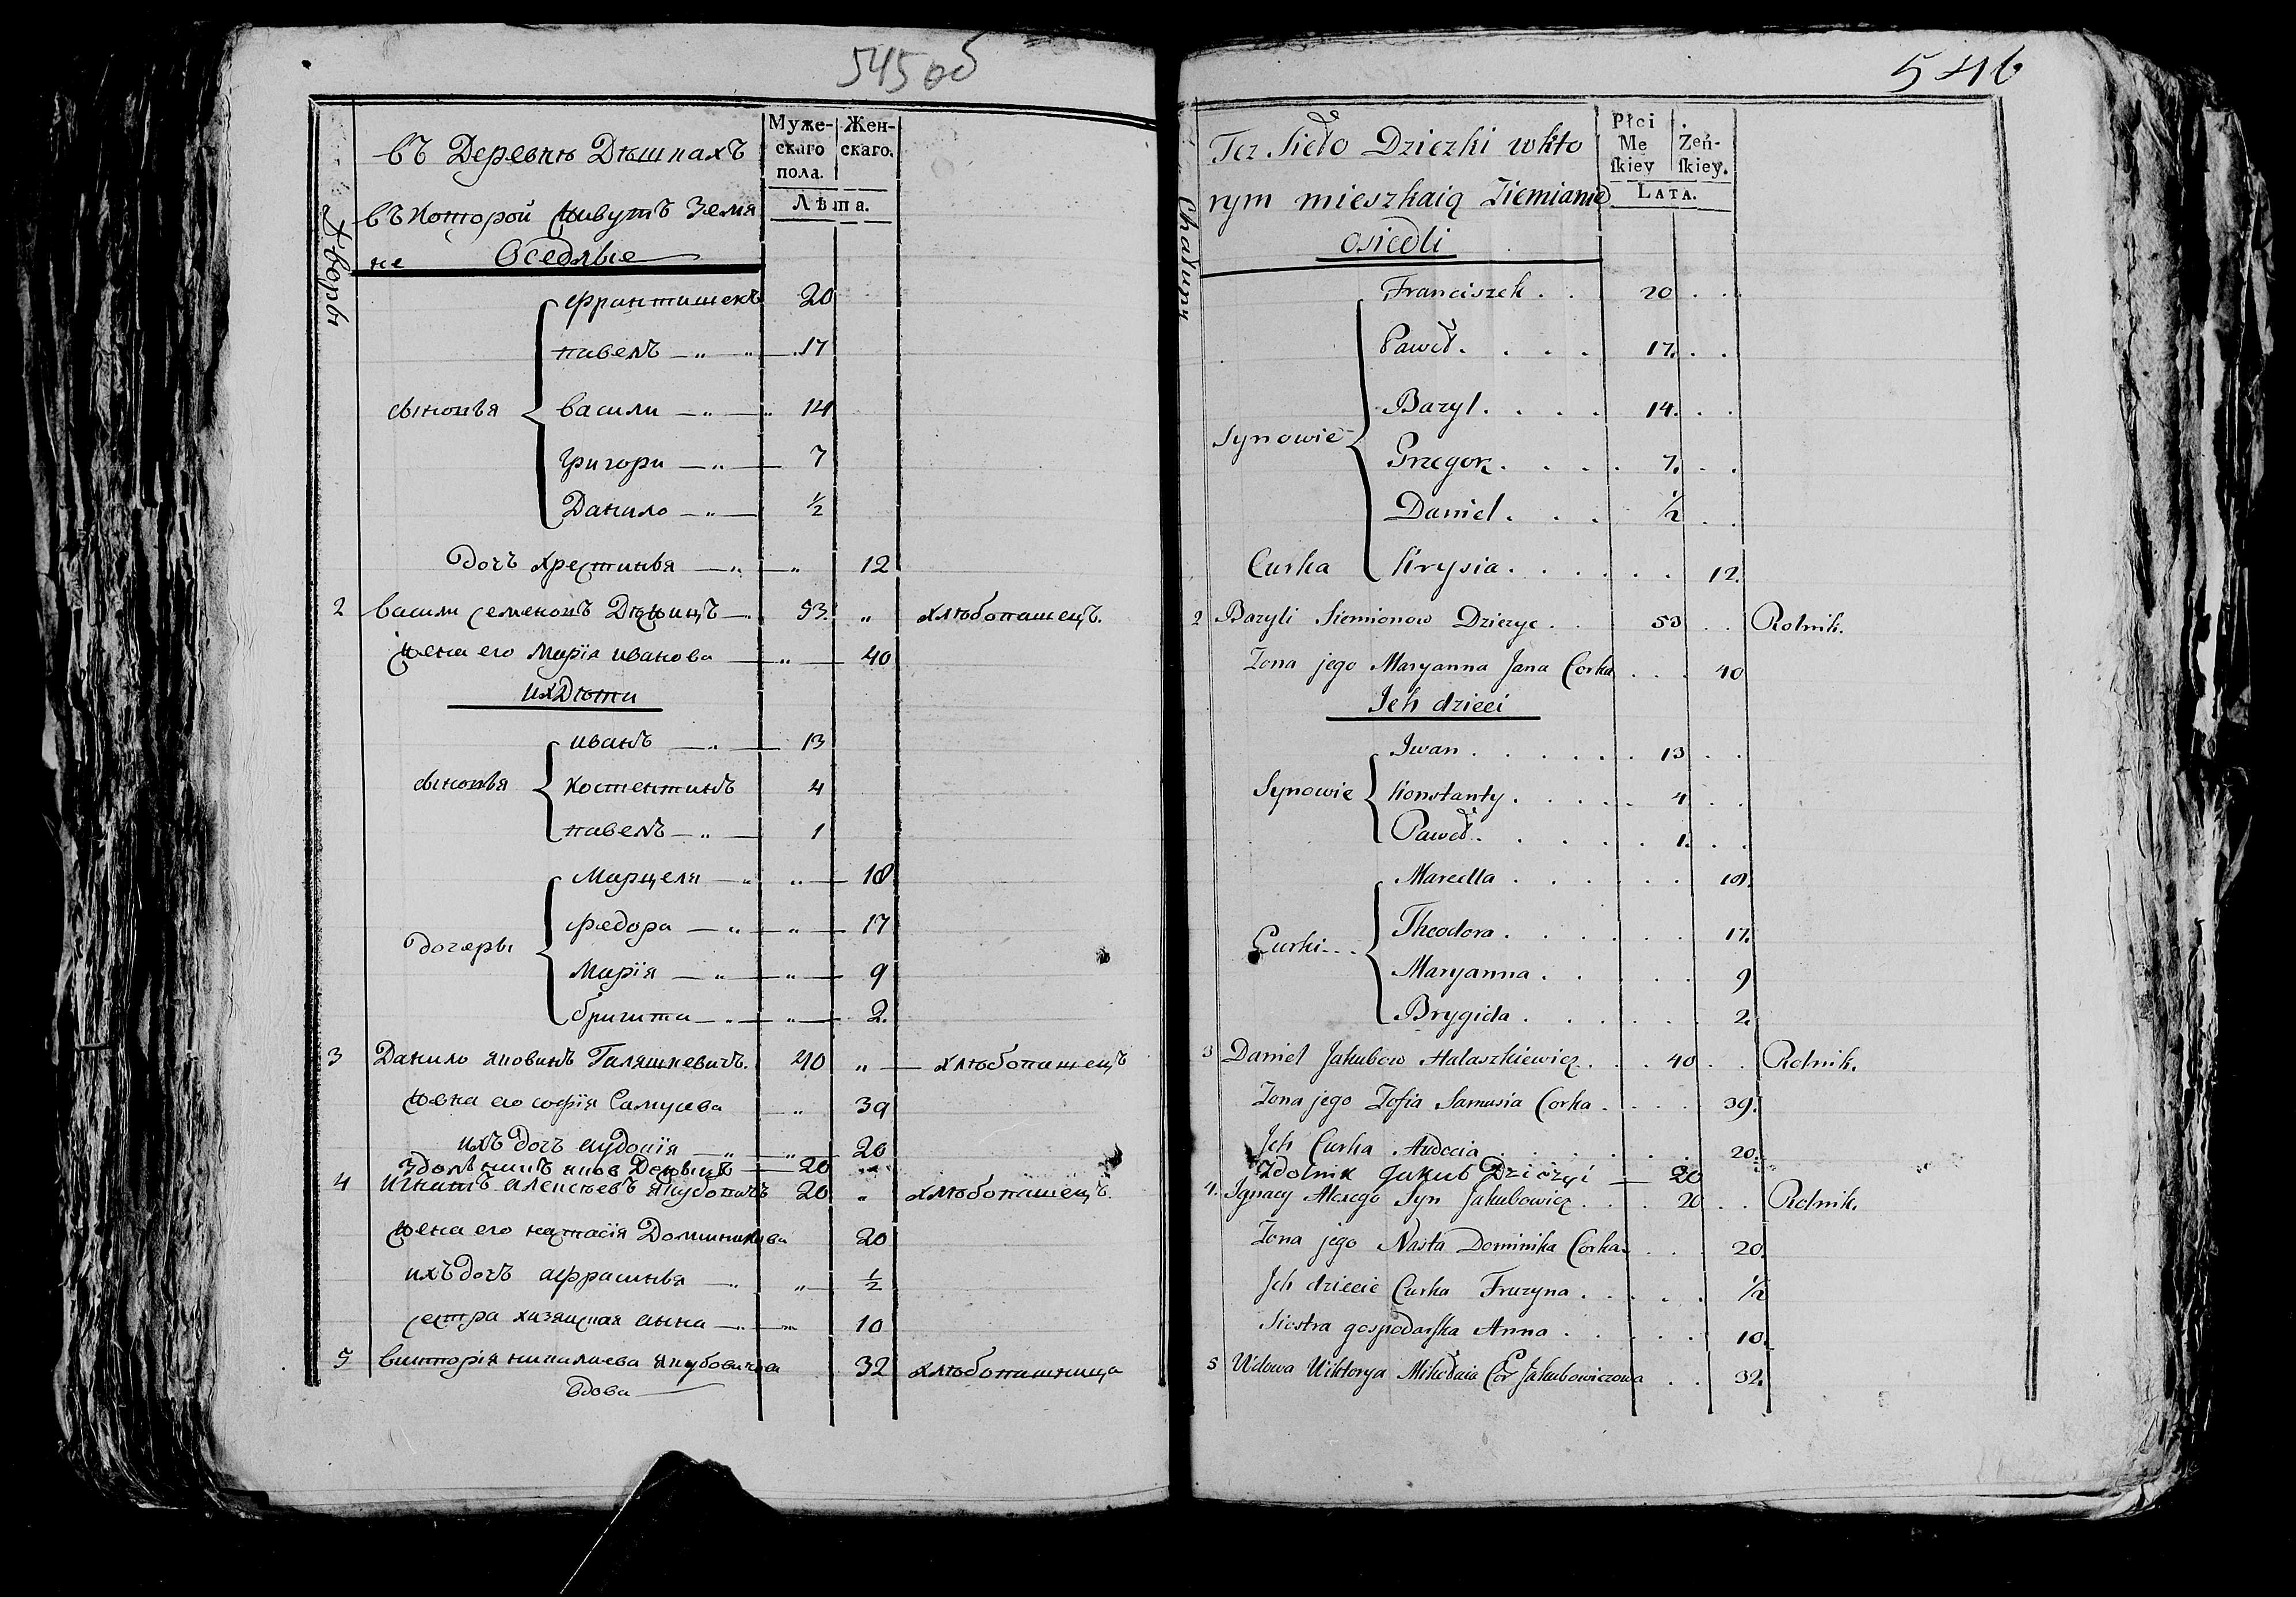 545 об
Дворы
Въ Деревнѣ Дѣшнахъ
въ Которой Живутъ Земя
не Оседлые
Муже-
скаго
пола.
Жен-
скаго.
Лѣта.
Франтишекъ 20
павелъ — „ — „ — 17
сыновья
васили — „ — „ 14
Григори — „ — 7
Данило — „ — ½
дочъ хрестинья — „ — „ 12
2 васили семеновъ — „ 53 „ хлѣбопашецъ.
жена его Марія иванова — „ — 40
ихДѣти
иванъ — „ — 13
сыновья
костентинъ 4
павелъ — „ — 1
Марцеля — „ — „ — 18
дочеры
федора — „ — „ — 17
Марія — „ — „ — 9
бригита — „ — „ — 2.
3 Данило яковинъ Галяшкевичъ. 40 „ — хлѣбопашецъ
жена его софія Самусева „ 39
ихъ дочъ аудокія — „ — „ 20
яков 20 „
4 Игнатъ алексѣевъ якубовичъ 20 „ хлѣбопашецъ.
жена его настасія Доминикова 20
ихъ дочъ афрасинья — „ „ ½
сестра хазяская анна — „ — „ 10
5 викторія николаева якубовичова 32 хлѣбопашница
вдова
546
Chałupy
Tez Sieło Dziczki wkto
rym mieszkaią Ziemianie
osiedli
Płci
Me
skiey
Zeń-
skiey.
LATA.
Franciszek . . 20 . .
Paweł. . . . 17. . .
Bazyl. . . . 14. . .
Synowie
Grzegorz. . . . 7. . .
Daniel. . . . ½ . .
Curka Krysia. . . . . . 12.
2 Bazyli Siemionow Dziczyc . . 53 . . Rolnik.
Zona jego Maryanna Jana Corka . . . 40
Ich dzieci
Iwan . . . . . . 13 . .
Synowie Konstanty . . . . . 4 . .
Paweł. . . . . . 1. . .
Marcella . . . . . . 18.
Theodora . . . . . . 17.
Curki...
Maryanna . . . . 9
Brygida . . . . . . 2.
3 Daniel Jakubow Hałaszkiewicz. . . 40 . . Rolnik.
Zona jego Zofia Samusia Corka . . . . 39.
Ich Curka Audocia . . . . . . 20.
Zdolnik Jakub Dziczyi — 20
4. Ignacy Alexego Syn Jakubowicz . . . 20 . . Rolnik.
Zona jego Nasta Dominika Corka . . . 20.
Ich dziecie Curka Fruzyna . . . . . ½
Siostra gospodarska Anna . . . . . 10.
5 Wdowa Wiktorya Mikołaia Cor Jakubowiczowa . . 32.